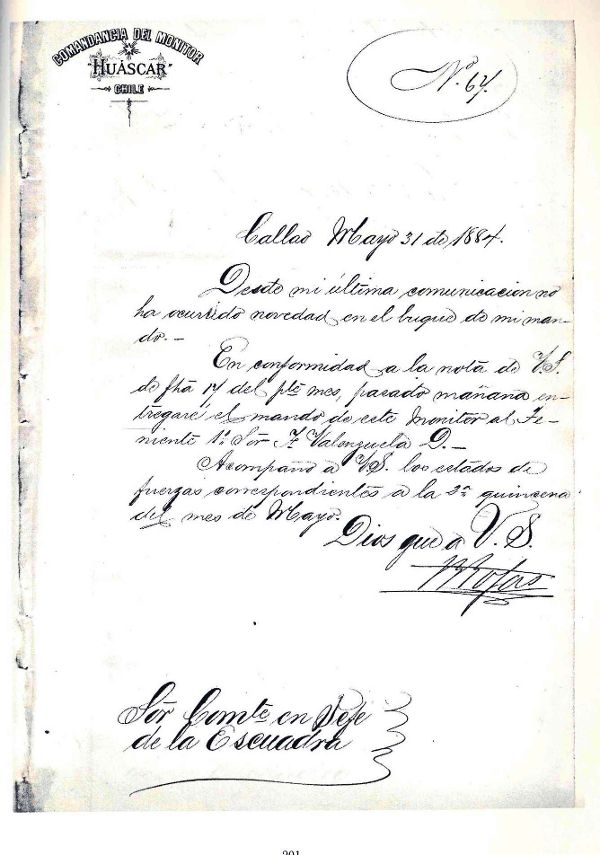 COMANDANCIA DEL MONITOR
"HUÁSCAR"
CHILE
Nº 67.
Callao Mayo 31 de 1884.
Desde mi última comunicacion no
ha ocurrido novedad en el buque de mi man-
do.-
En conformidad a la nota de V.S.
de fha 17 del pte mes, pasado mañana en-
tregaré el mando de este Monitor al Te-
niente 1º Sor Fco Valenzuela D.-
Acompaño a V.S. los estados de
fuerzas correspondientes a la 2ª quincena
del mes de Mayo.
Dios gue a V. S.
Sor Comte en Jefe
de la Escuadra
201